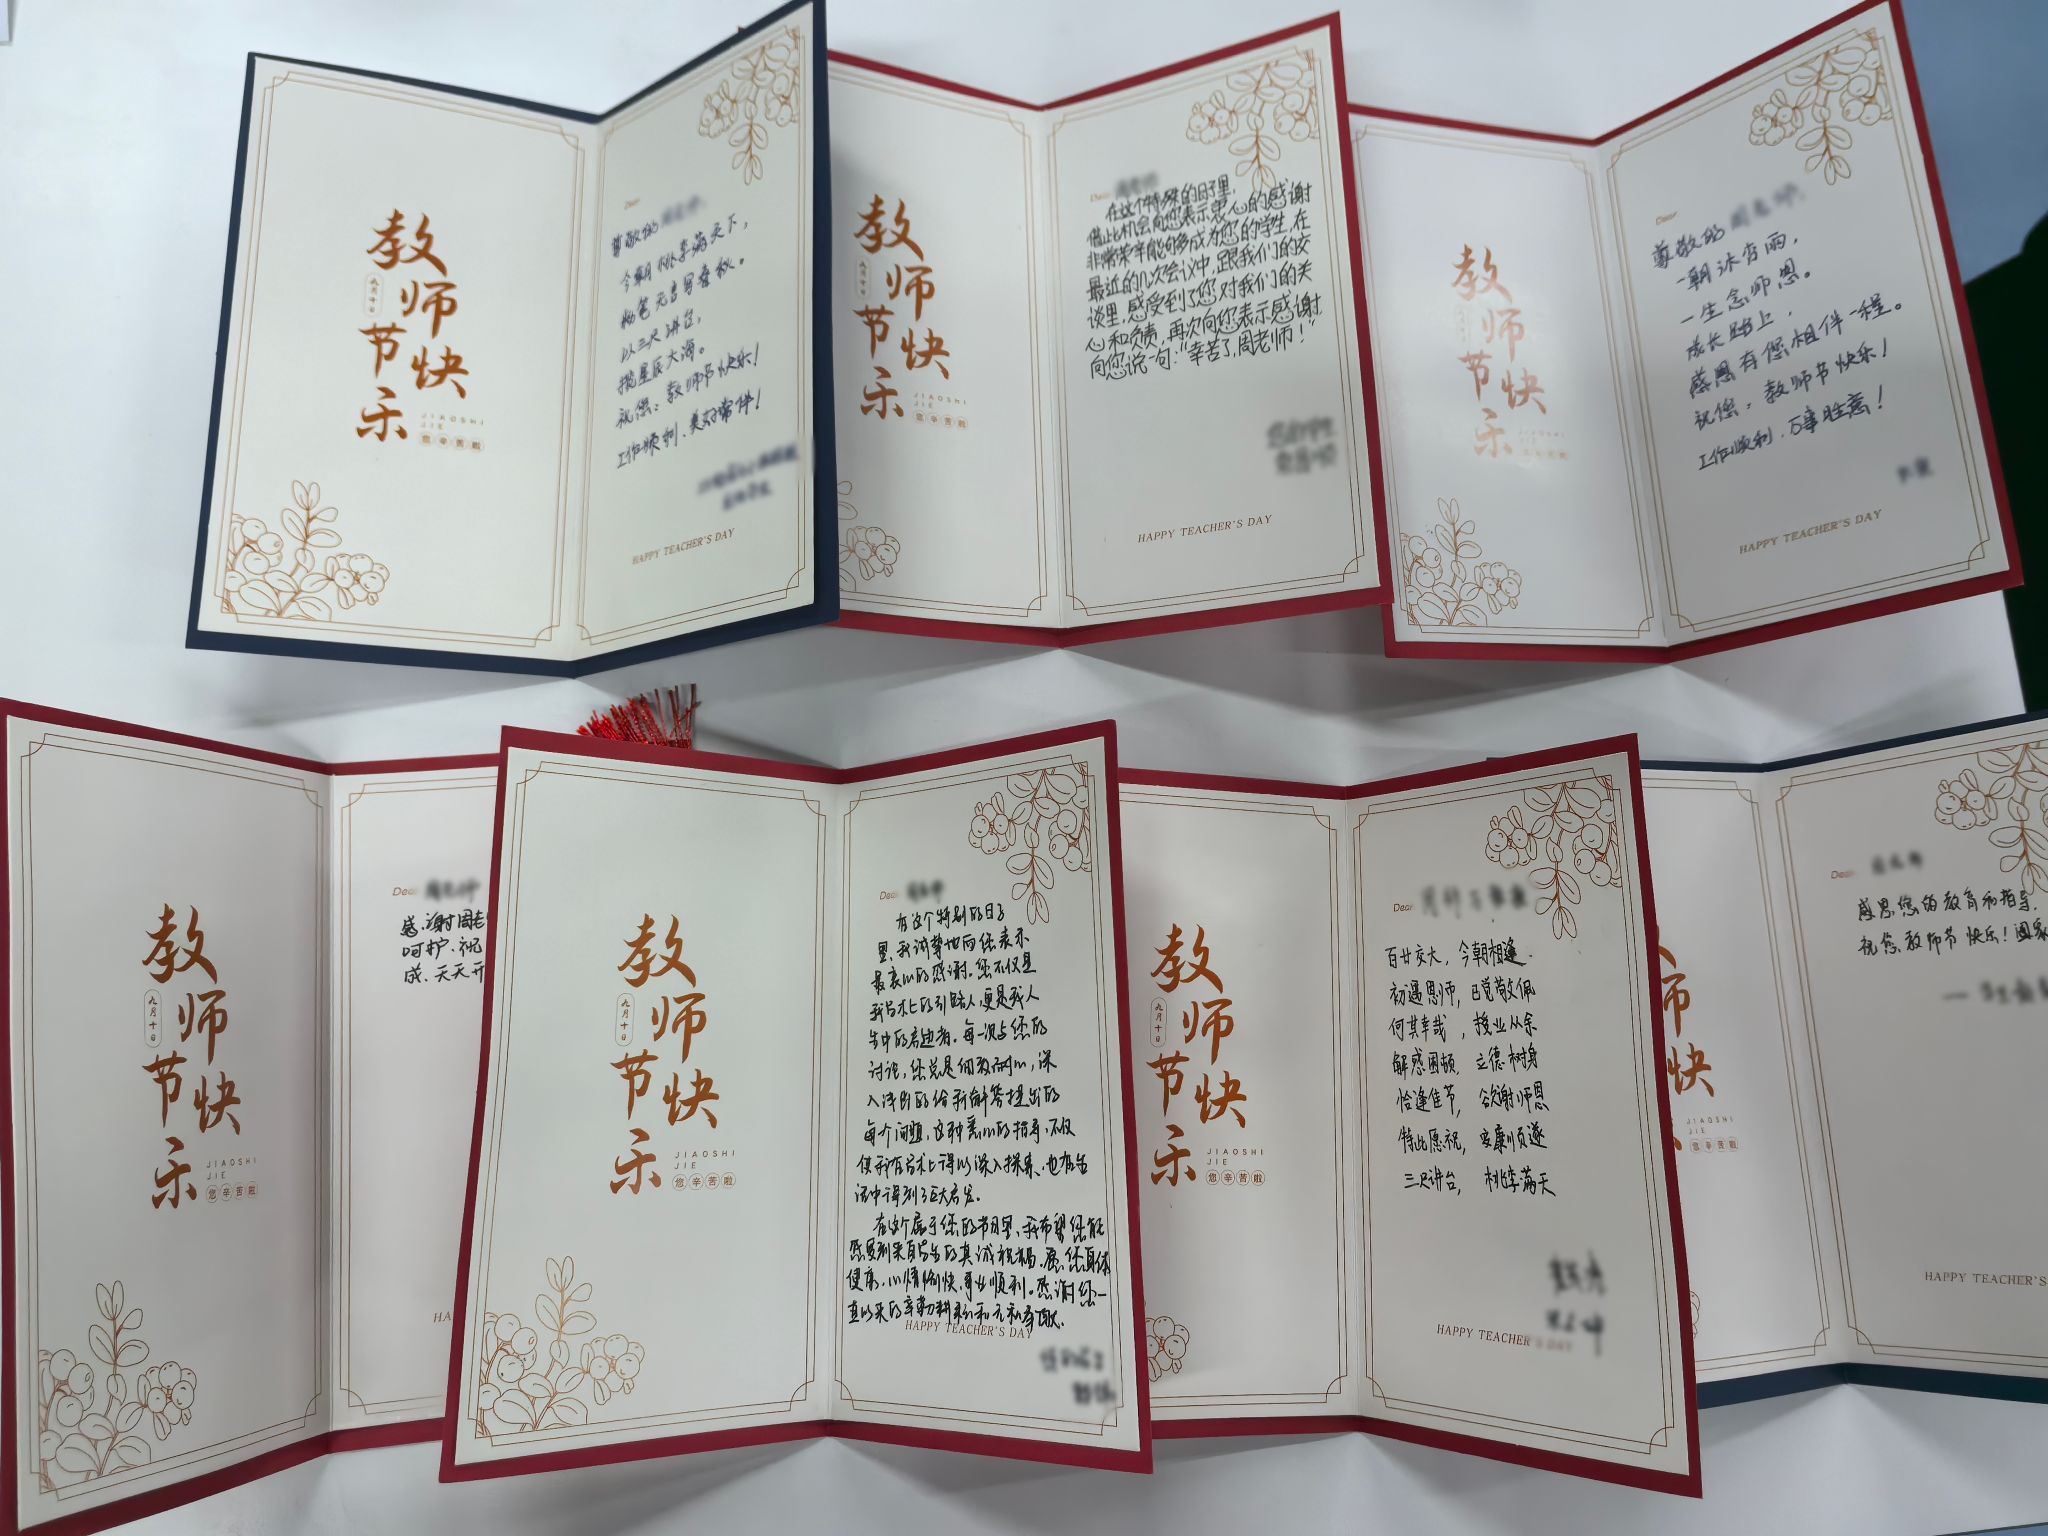 教师节快乐
九月十日
JIAOSHI
JIE
您辛苦啦
Dear
尊敬的
今朝桃李满天下，
粉笔无言写春秋。
以三尺讲台，
揽星辰大海。
祝您：教师节快乐！
工作顺利、美好常伴！
HAPPY TEACHER'S DAY
教师节快乐
九月十日
JIAOSHI
JIE
您辛苦啦
Dear
在这个特殊的日子里，
借此机会向您表示衷心的感谢
非常荣幸能够多成为您的学生，在
最近的几次会议中，跟我们的交
谈里，感受到了您对我们的关
心和负责，再次向您表示感谢
向您说一句：“辛苦了，周老师！”
HAPPY TEACHER'S DAY
教师节快乐
JIAOSHI
JIE
Dear
尊敬的
一朝沐杏雨，
一生念师恩。
成长路上，
感恩有您相伴一程。
祝您：教师节快乐！
工作顺利、万事胜意！
HAPPY TEACHER'S DAY
教师节快乐
九月十日
JIAOSHI
JIE
您辛苦啦
Dear
感谢周老
呵护、祝
成、天天开
HA
教师节快乐
九月十日
JIAOSHI
JIE
您辛苦啦
Dear
在这个特别的日子
里，我诚挚地向您表示
最衷心的感谢。您不仅是
我学术上的引路人，更是我人
生中的启迪者。每一次与您的
讨论，您总是细致耐心，深
入浅出的给我解答提出的
每个问题，这种悉心的指导，不仅
使我在学术上得以深入探索、也在生
活中得到了巨大启发。
在这个属于您的节日里，我希望您能
感受到来自学生的真诚祝福。愿您身体
健康，心情愉快，事业顺利。感谢您一
直以来的辛勤耕耘和无私奉献。
HAPPY TEACHER'S DAY
教师节快乐
九月十日
JIAOSHI
JIE
您辛苦啦
Dear
百廿交大，今朝相逢
初遇恩师，已觉敬佩
何其幸哉，授业从余
解惑困顿，立德树身
恰逢佳节，欲谢师恩
特此愿祝，安康顺遂
三尺讲台，桃李满天
HAPPY TEACHER'S DAY
师快
JIAOSHI
JIE
您辛苦啦
Dear
感恩您的教育和指导，
祝您教师节快乐！阖家
HAPPY TEACHER'S